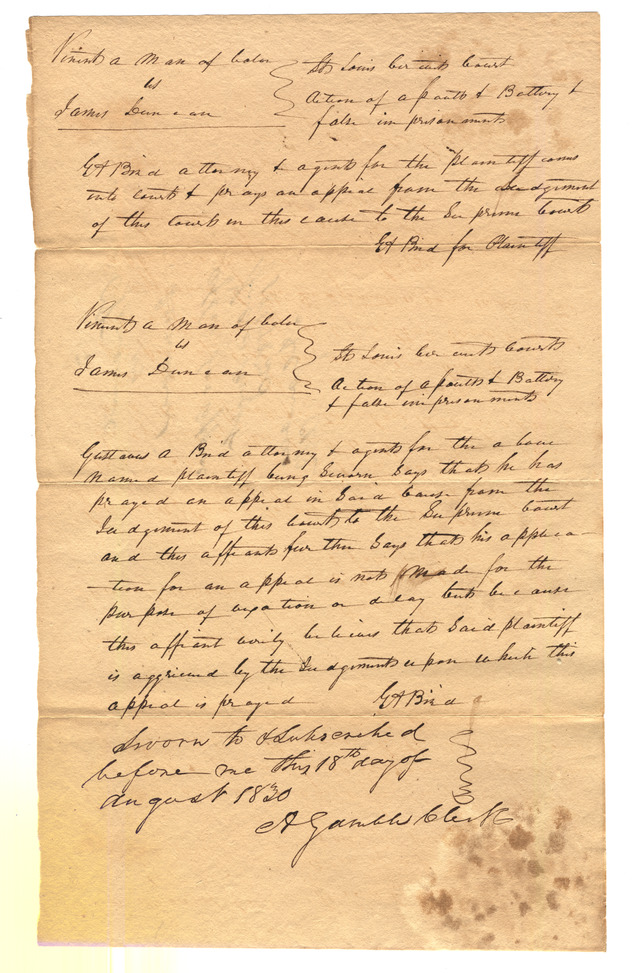 Vincent a Man of Color
vs
James Duncan
St Louis Circuit Court
Action of assault & Battery &
false imprisonment
GA Bird attorney & agent for the plaintiff comes
into court & prays an appeal from the Judgement
of this court in this cause to the Supreme Court
GA Bird for Plaintiff
Vincent a Man of Color
vs
James Duncan
St Louis Circuit Court
Action of assault & Battery
& false imprisonment
Gustavus A Bird attorney & agent for the above
named plaintiff being Sworn Says that he has
prayed an appeal in Said Cause from the
Judgement of this Court to the Supreme Court
and this affiant further Says that his applica-
-tion for an appeal is not Made for the
purpose of vexation or delay but because
this affiant verily believes that Said plaintiff
is aggrieved by the Judgement upon which this
appeal is prayed
GA Bird
Sworn to & Subscribed
before me this 18th day of
august 1830
A Gamble Clerk